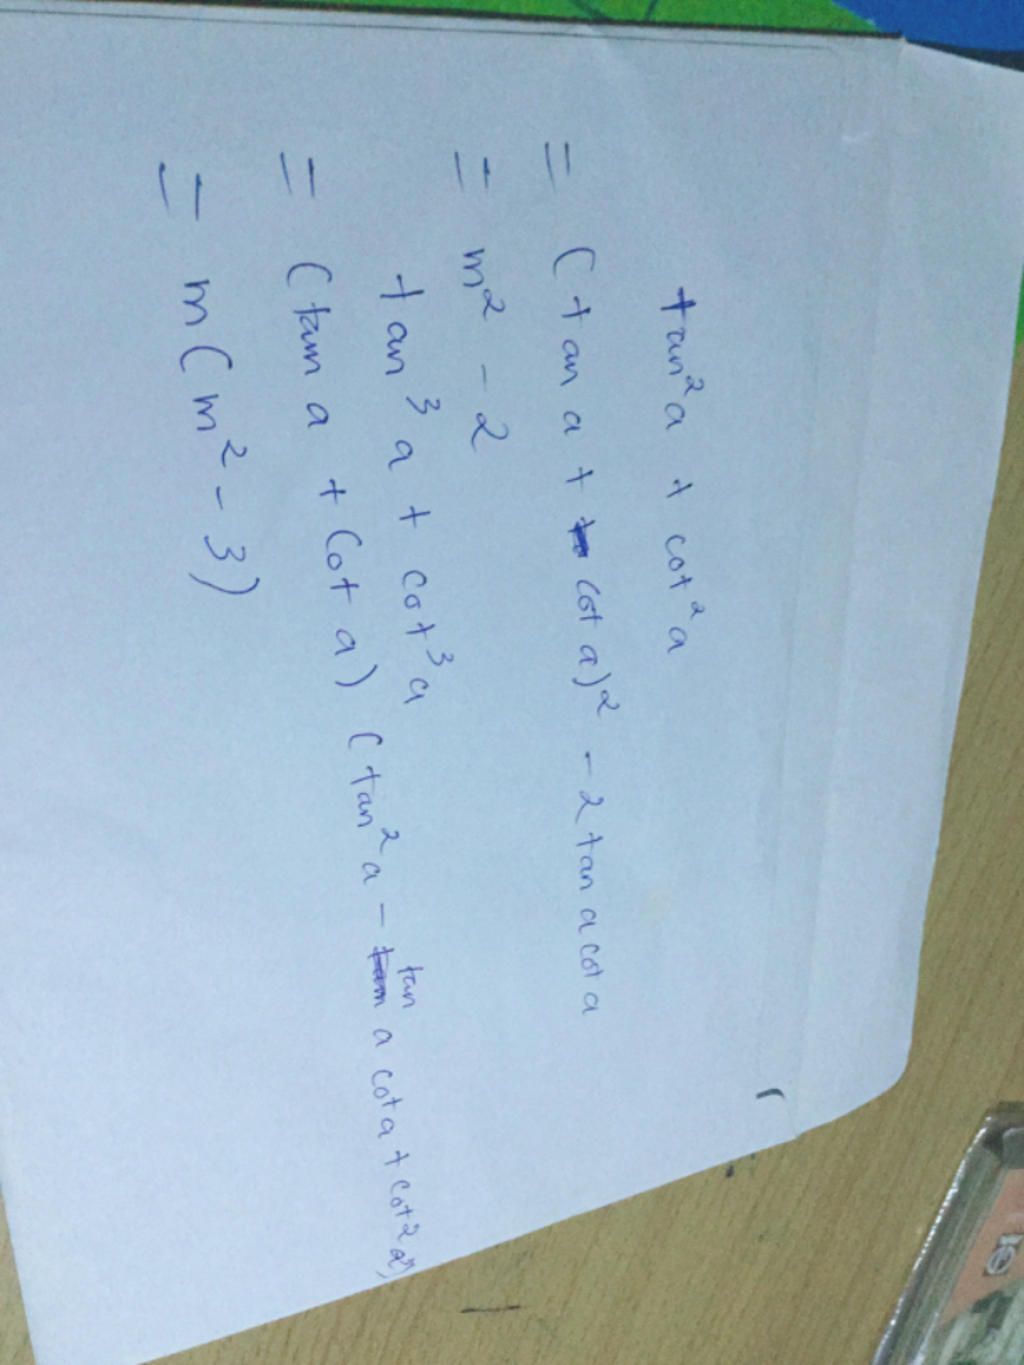 tan²a + cot²a
= (tan a + cot a)² - 2 tan a cot a
= m² - 2
tan³a + cot³a
= (tan a + cot a) (tan²a - tan a cot a + cot²a)
= m(m² - 3)